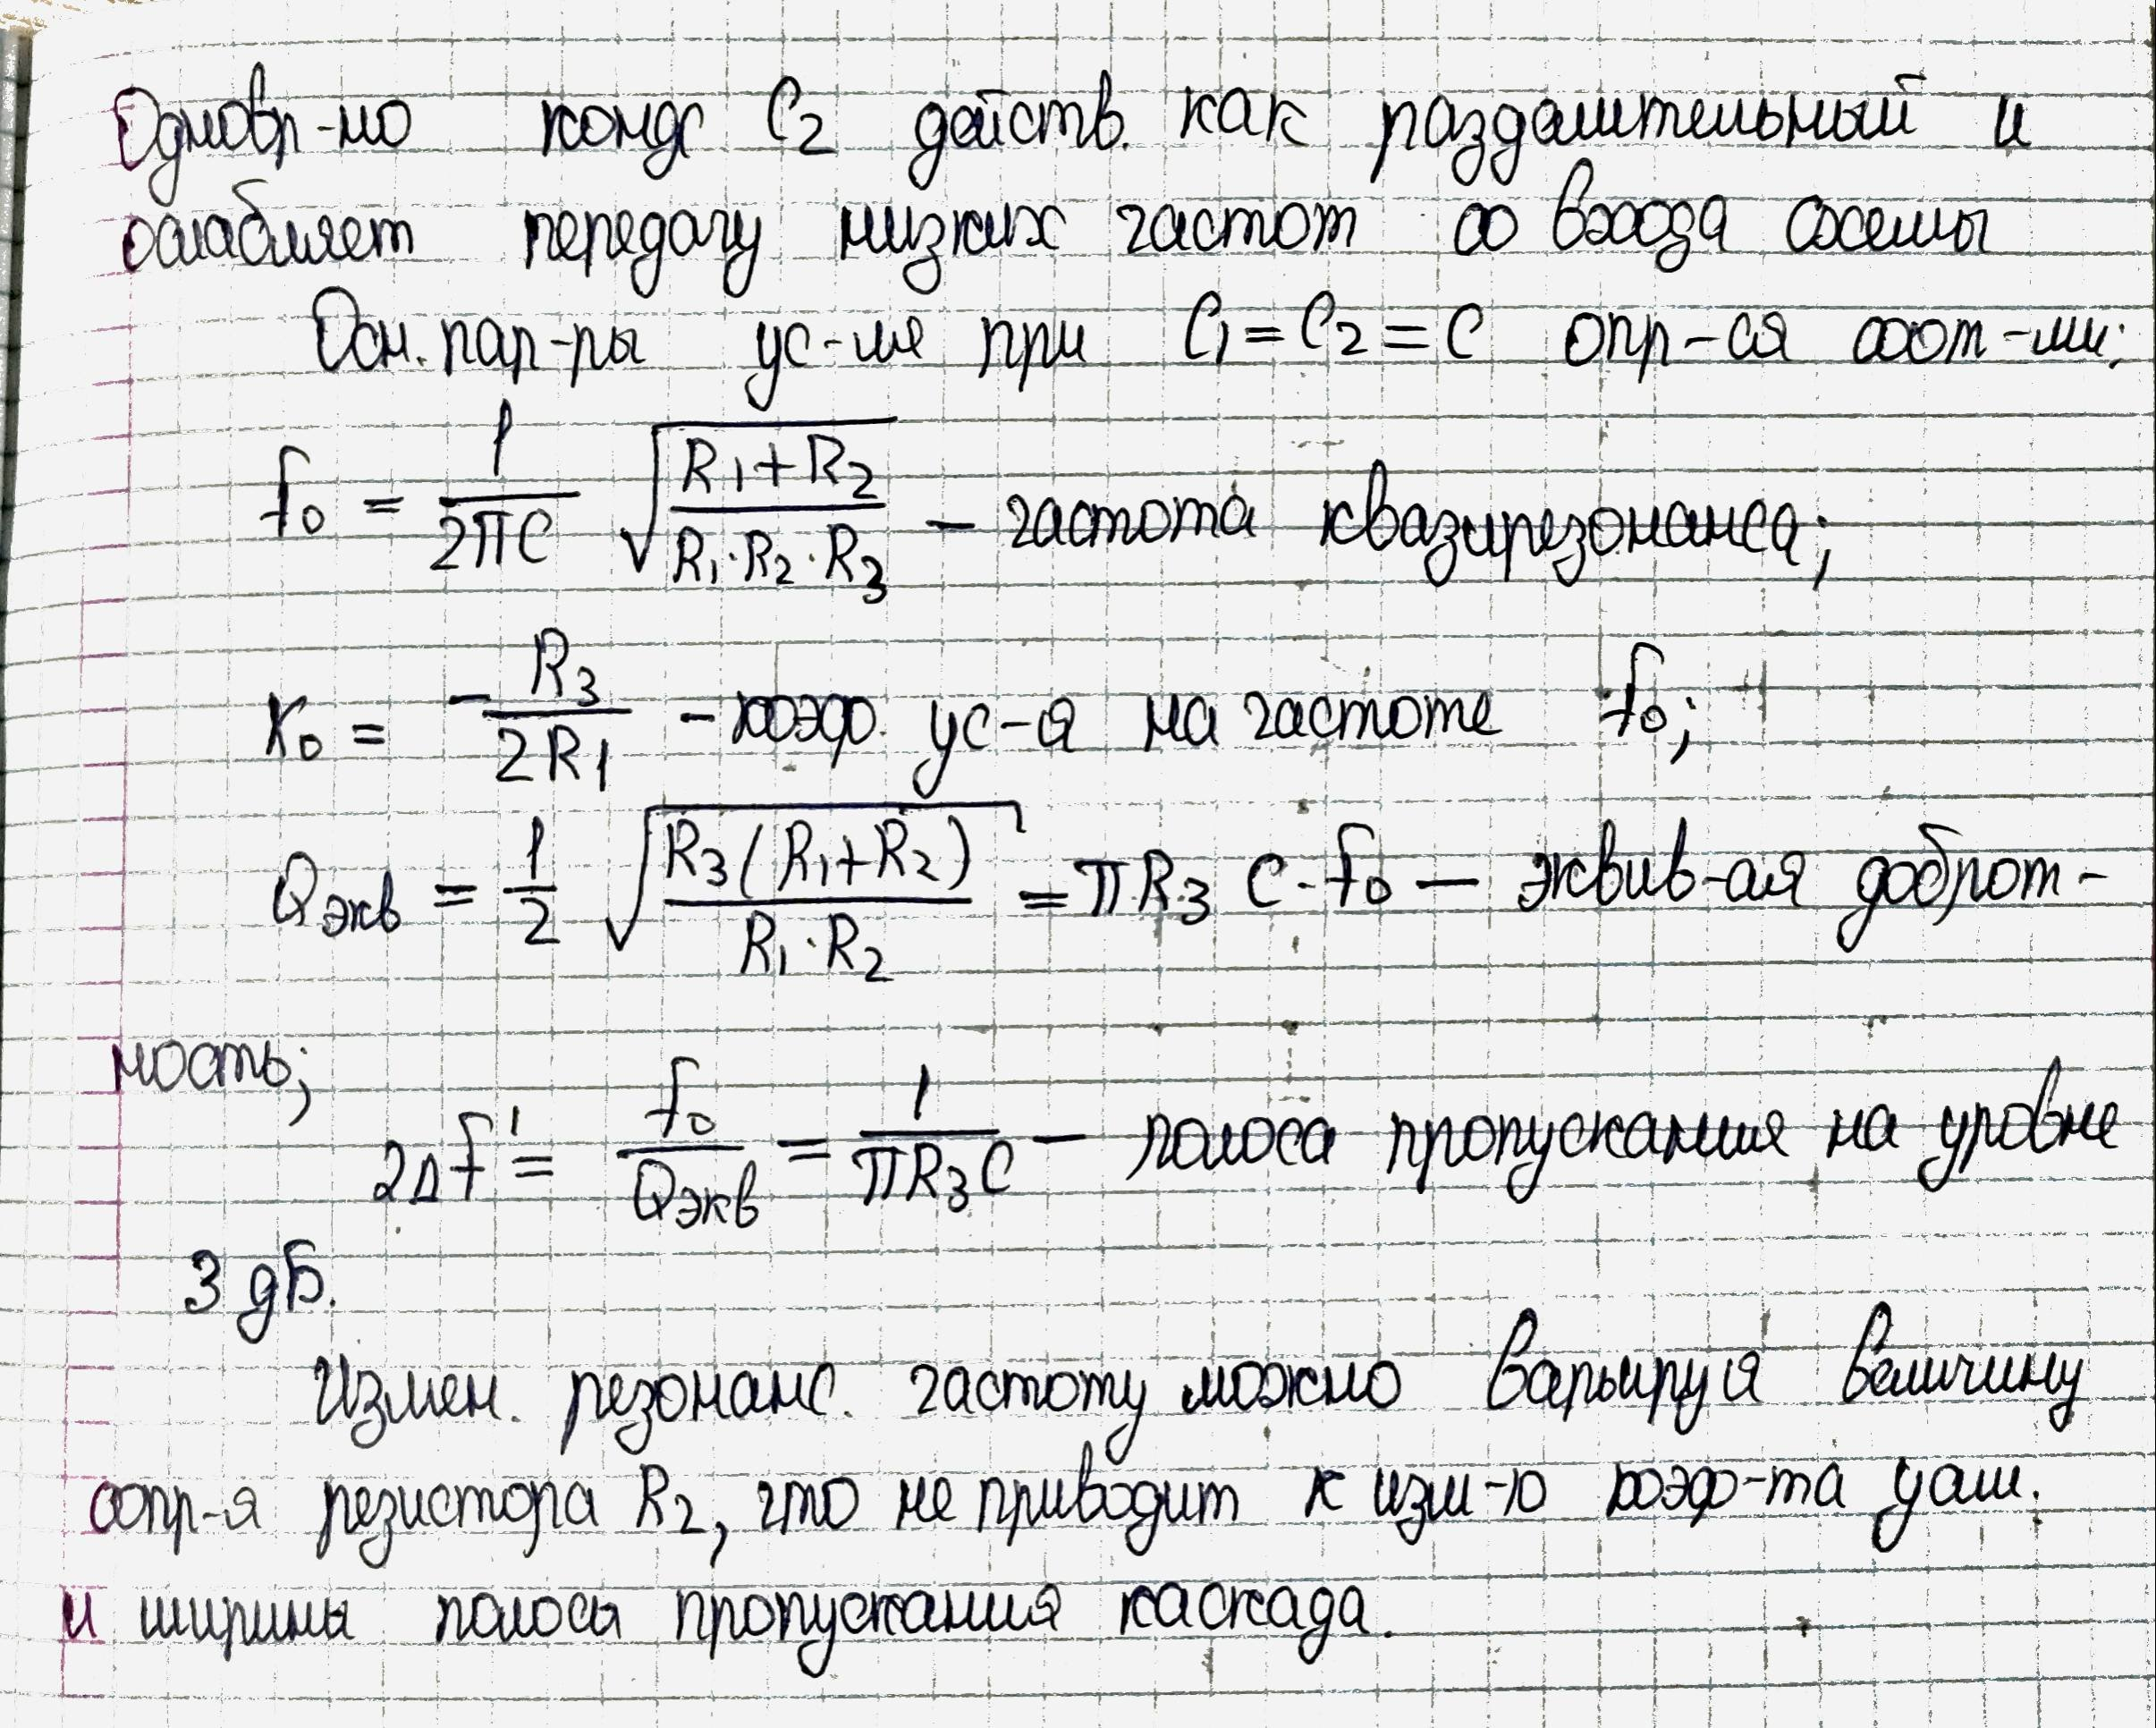 Одновр-но конд С₂ действ. как разделительный и
ослабляет передачу низких частот со входа схемы
Осн. пар-ры ус-ля при C₁ = C₂ = C опр-ся соот-ми:
f₀ = 1/(2πC) √((R₁+R₂)/(R₁·R₂·R₃)) – частота квазирезонанса;
K₀ = -R₃/(2R₁) – коэф. ус-я на частоте f₀;
Qэкв = 1/2 √(R₃(R₁+R₂)/(R₁·R₂)) = πR₃ C·f₀ – эквив-ая доброт-
ность;
2Δf' = f₀/Qэкв = 1/(πR₃C) – полоса пропускания на уровне
3 дБ.
Измен. резонанс. частоту можно варьируя величину
сопр-я резистора R₂, что не приводит к изм-ю коэф-та усил.
и ширины полосы пропускания каскада.